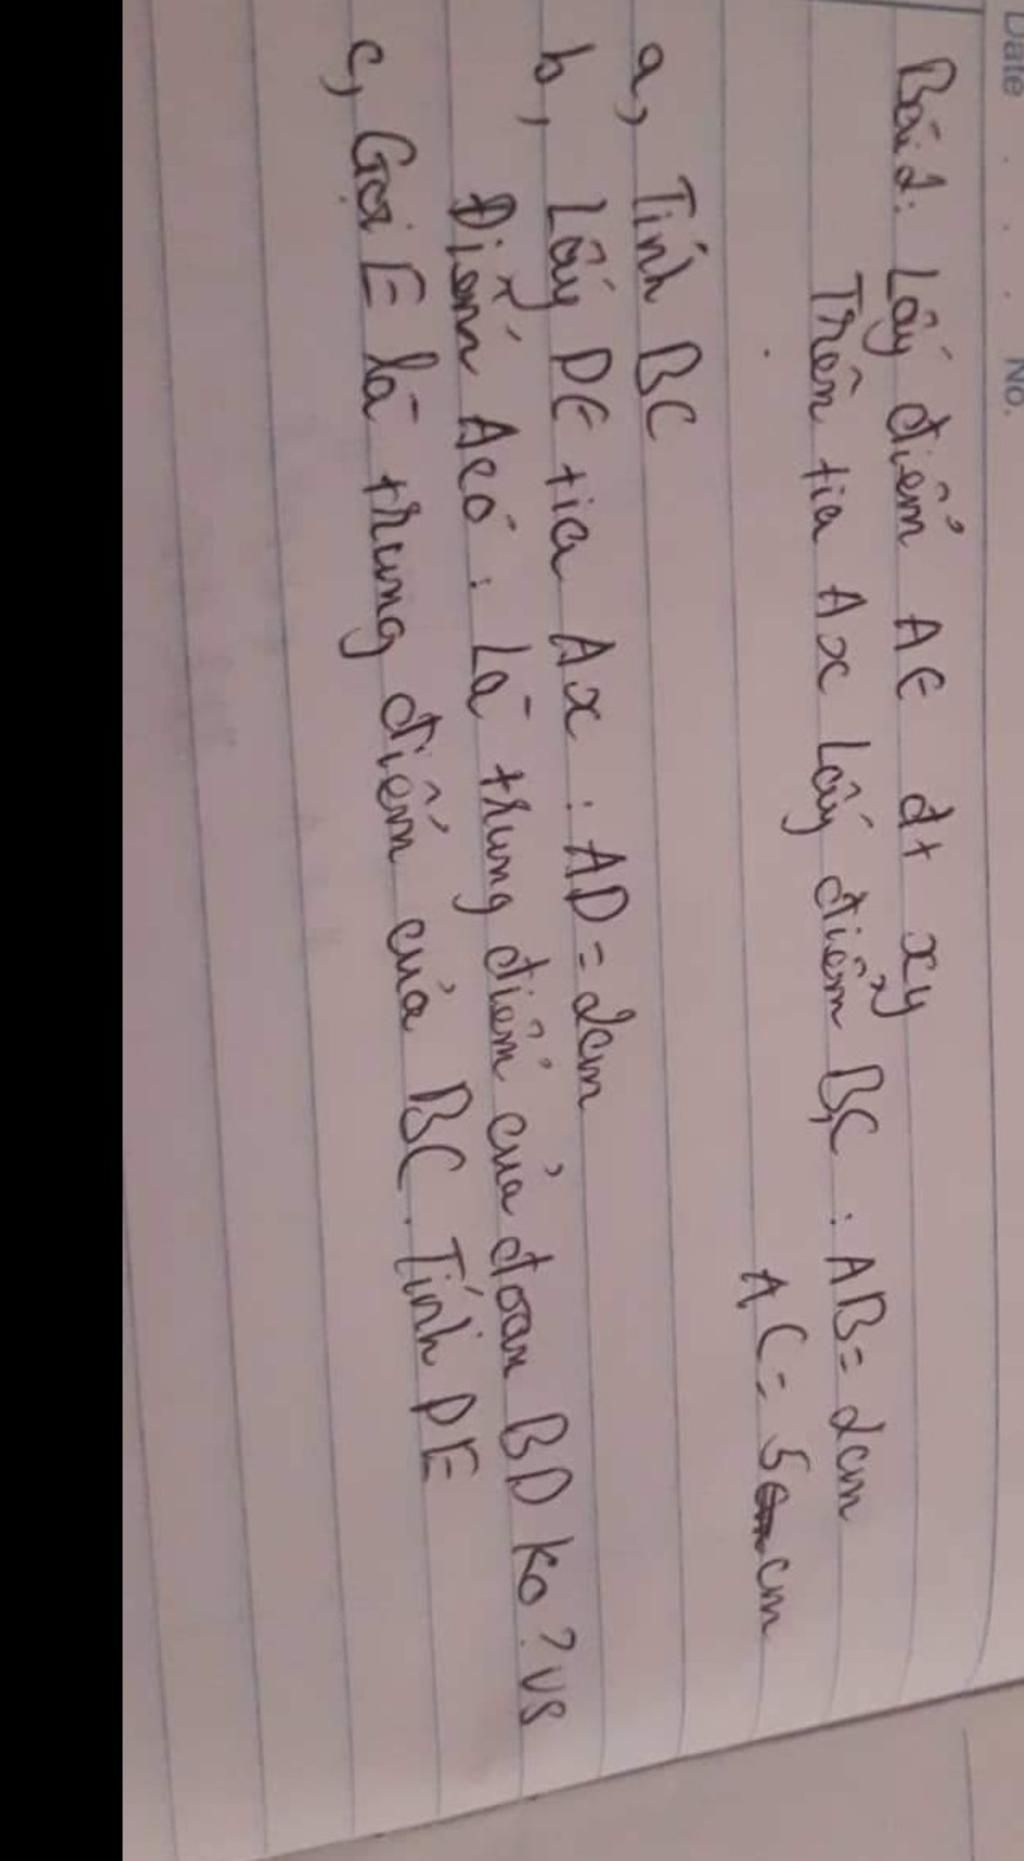 Date No.
Bài 2: Lấy điểm A∈ đt xy
Trên tia Ax Lấy điểm B,C : AB = 2cm
AC = 5cm
a, Tính BC
b, Lấy D∈ tia Ax : AD = 2cm
Điểm A có : Là trung điểm của đoan BD ko? vs
c, Gọi E là trung điểm của BC. Tính DE